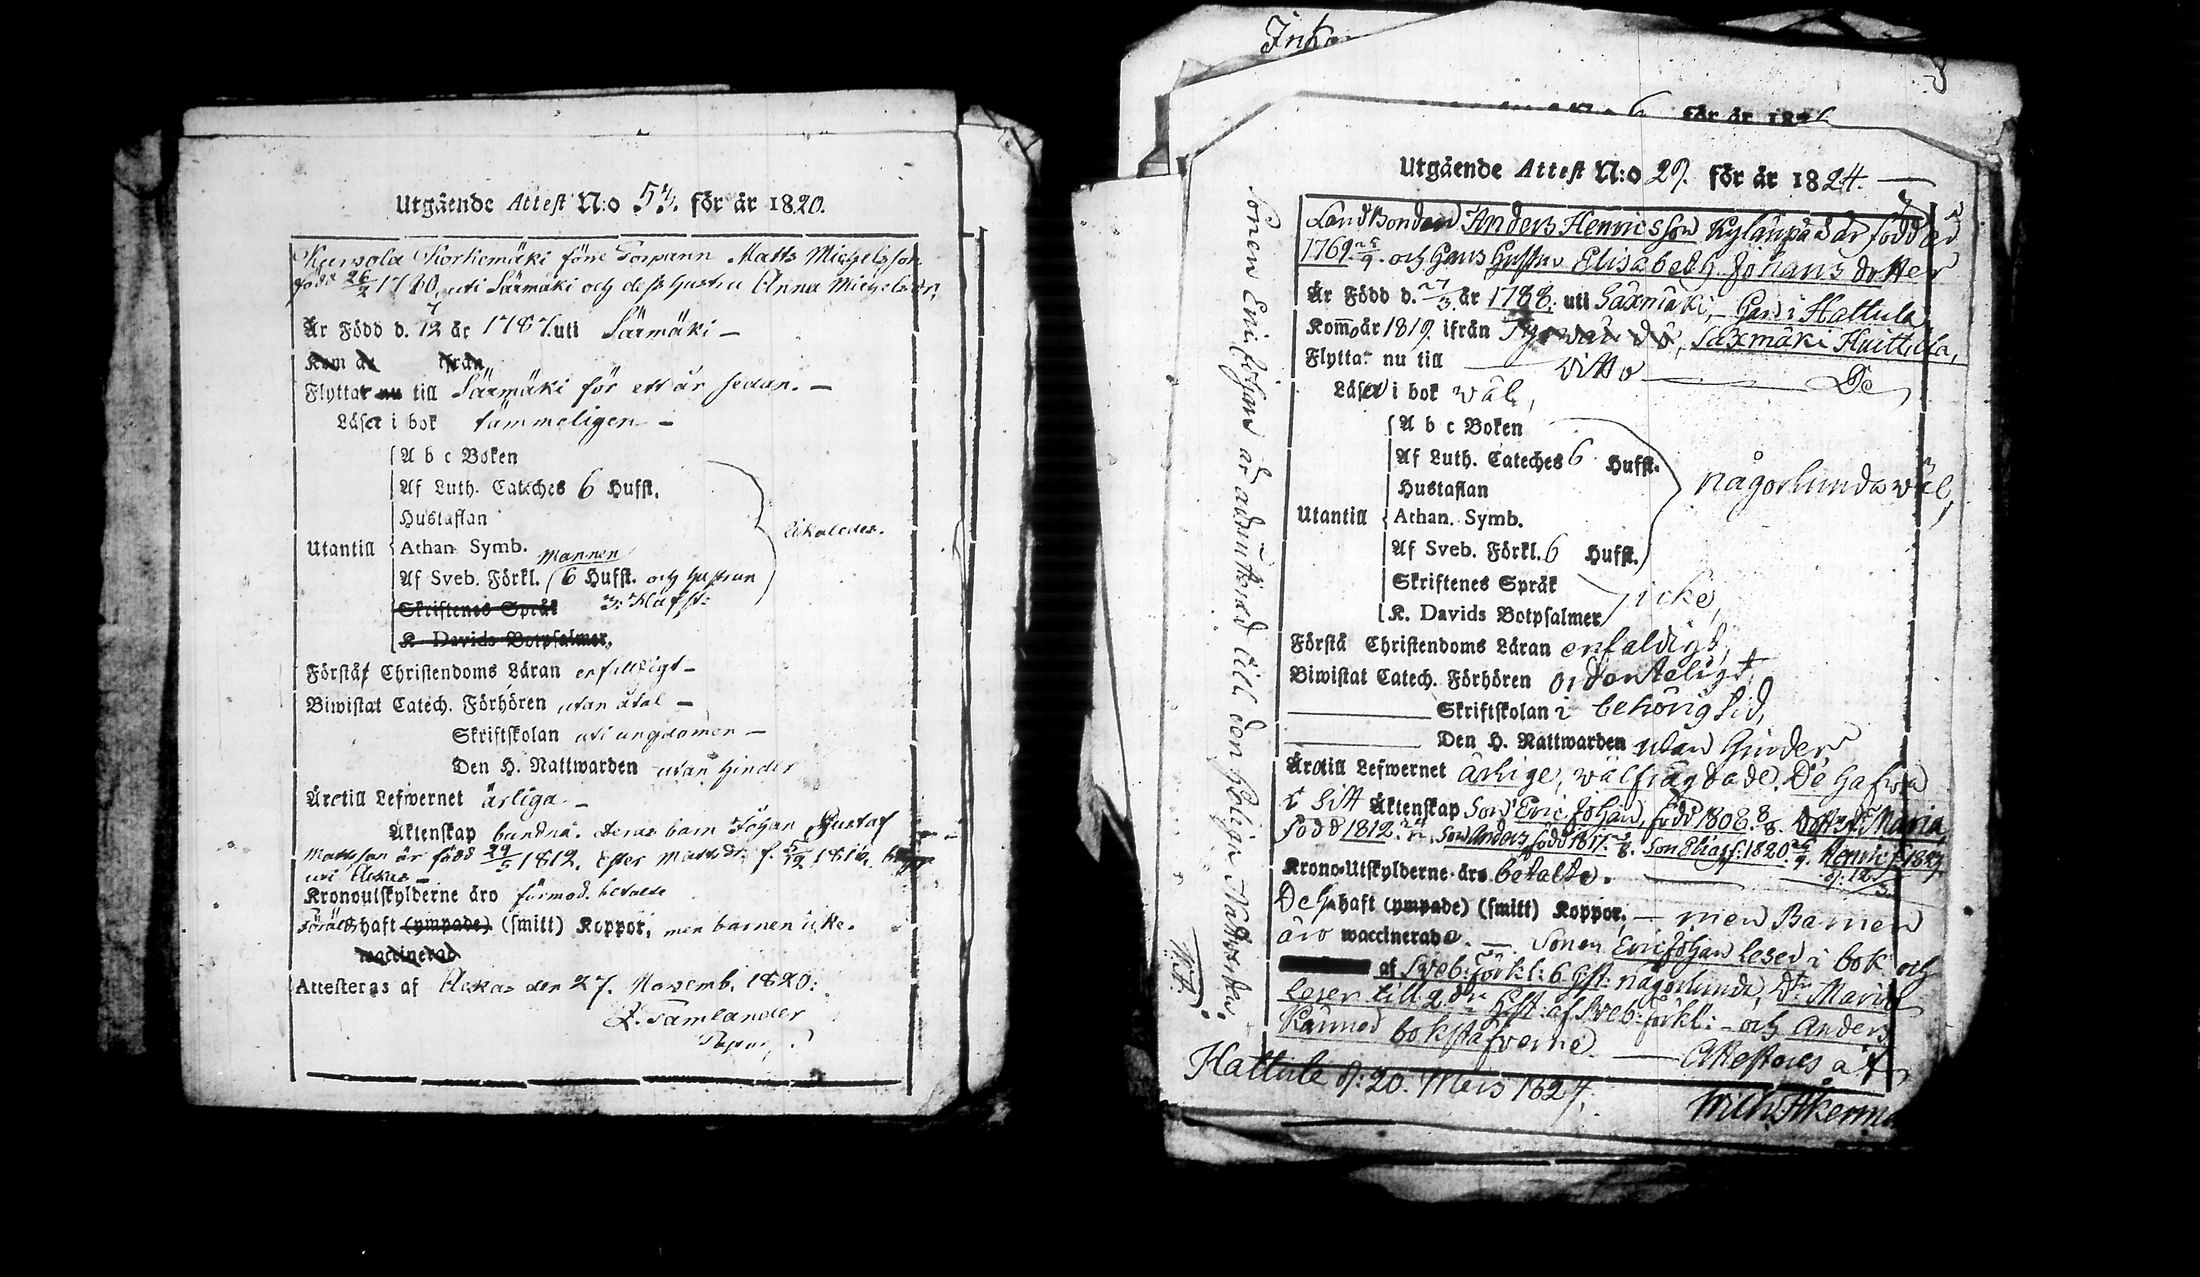 Utgående Attest N:o 53. för år 1820.
Kurvola Korkemäki förre Torparn Matts Michelsson
född 26/2 1780, uti Säxmäki och dess hustru Anna Michelsdr,
Är Född d. 12/7 år 1787. uti Säxmäki –
Kom år ifrån
Flyttar nu till Säxmäki för ett år sedan. –
Läser i bok tämmeligen –
A b c Boken
Af Luth. Cateches 6 Hufst.
Hustaflan
likaledes.
Utantill Athan. Symb.
Mannen
Af Sveb. Förkl. 6 Hufst. och hustrun
Skriftenes Språk 3: Hufst:
K. Davids Botpsalmer,
Förstår Christendoms Läran enfaldigt –
Biwistat Catech. Förhören utan åtal –
Skriftskolan uti ungdomen –
Den H. Nattwarden utan hinder
Är till Lefwernet ärliga. –
Äktenskap bundna. deras barn Johan Gustaf
Mattsson är född 29/5 1812. Mattsdr. f. 1816.
uti Ackas –
Kronoutskylderne äro förmod. betalte
haft (ympade) (smitt) Koppor, men barnen icke.
waccinerad
Attesteras af Ackas den 27. Novemb. 1820:
Tamlander
Inkom
6 för år 182
Utgående Attest N:o 29. för år 1824. –
Landbonden Anders Henricsson Kylänpää är född år
1769 25/9. och hans hustru Elisabeth Johans dotter
Är Född d. 27/3 år 1788. uti Säxmäki, – Han i Hattula
Kom år 1819. ifrån Säxmäki Huittula,
Flyttar nu till – ditto – De
Läser i bok wäl,
A b c Boken
Af Luth. Cateches 6 Hufst.
Hustaflan
någorlunda wäl,
Utantill Athan. Symb.
Af Sveb. Förkl. 6 Hufst.
Skriftenes Språk
icke,
K. Davids Botpsalmer
Förstå Christendoms Läran enfaldigt,
Biwistat Catech. Förhören ordenteligt,
Skriftskolan i behörig tid,
Den H. Nattwarden utan hinder
Äro till Lefwernet ärlige, wälfrägdade. De hafwa
i sitt Äktenskap Son Eric Johan, född 1808. 8/8. Dottr. Maria
född 1812. Son Anders född 1817. Son Elias f: 1820. Henric f: 1823
Krono-Utskylderne äro betalte.
De haft (ympade) (smitt) Koppor, – men Barnen
äro waccinerade. – Sonen Eric Johan leser i bok och
af Sveb: förkl: 6 hft: någorlunda, Dtr: Maria
leser till 2. dra hft: af Sveb: förkl: – och Anders
känner bokstäfwerne – Attesteres af
Hattula d: 20. Mars 1824.
Wilh. Åkerma
Sonen Eric Johan är admitterad till den Heliga Nattwarden.